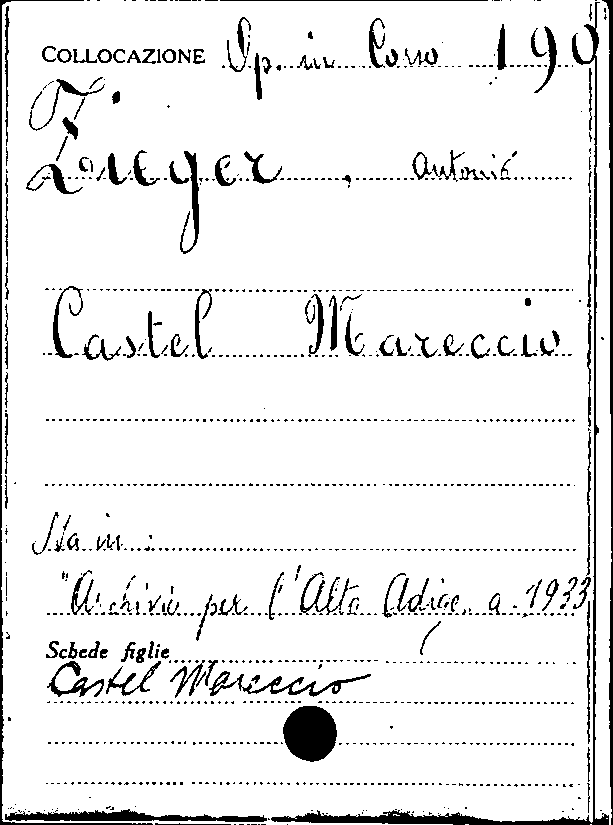 COLLOCAZIONE Op. in Corso 190
Zieger, Antonio
Castel Mareccio
Sta in:
"Archivio per l'Alto Adige, a. 1933
Schede figlie
Castel Mareccio